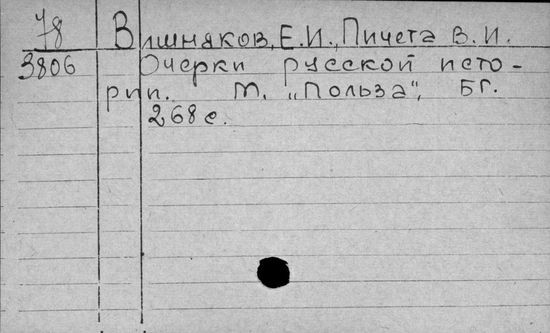 78
3806
Вишняков, Е.И., Пичета В.И.
Очерки русской исто-
рии. М. „Польза", БГ.
268 с.